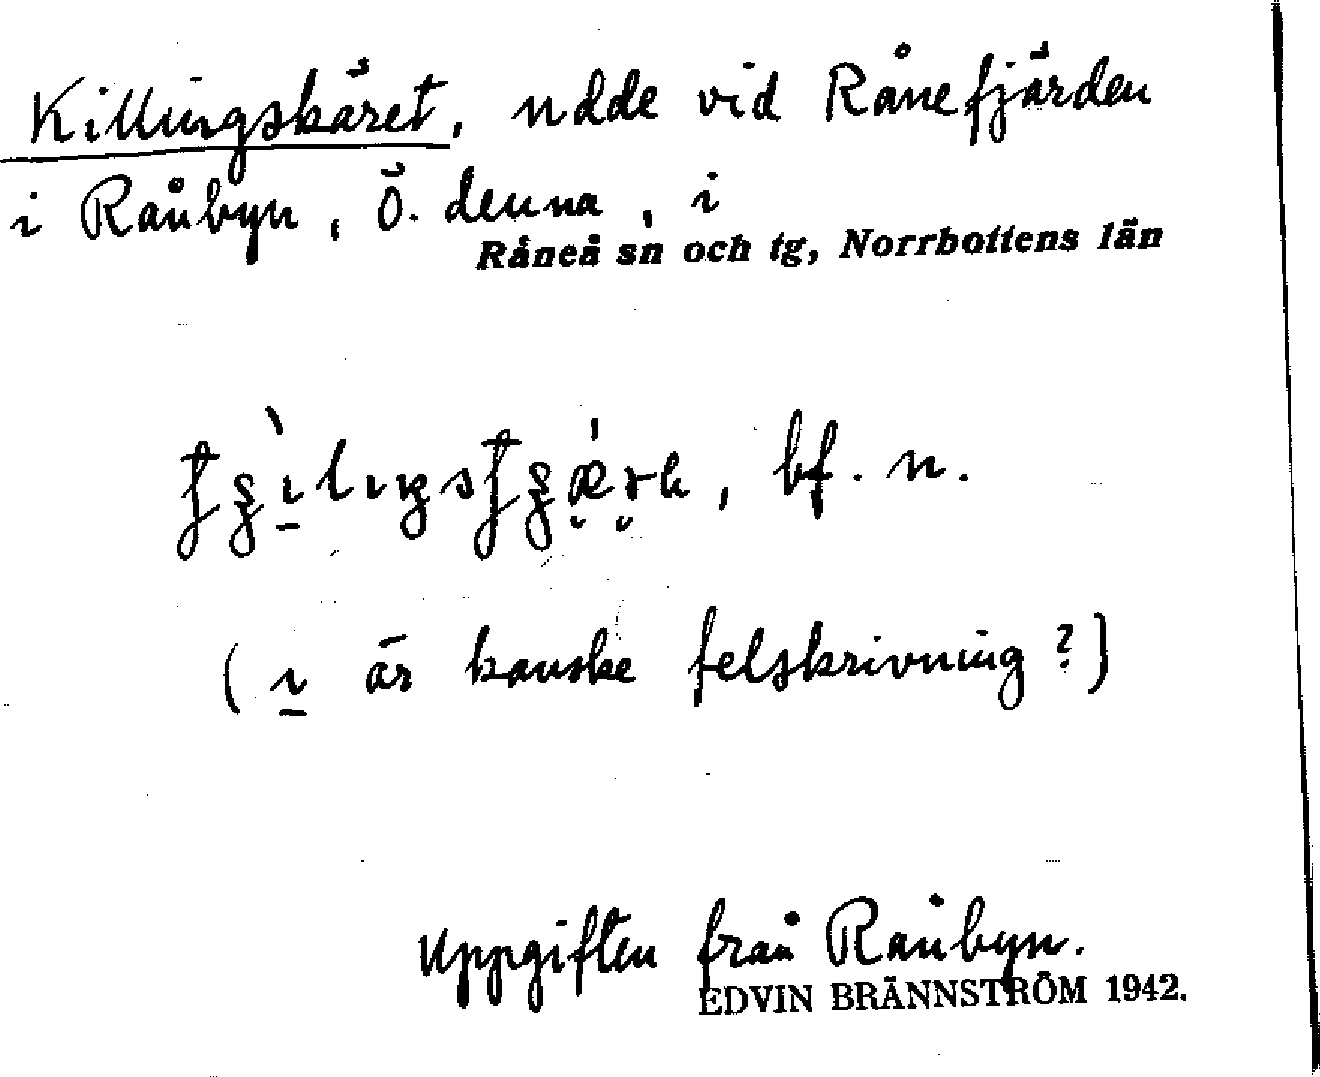 Killingskäret, udde vid Rånefjärden
i Rånbyn, Ö. denna, i
Råneå sn och tg, Norrbottens län
bf. n.
(ı̱ är kanske felskrivning?)
Uppgiften från Rånbyn.
EDVIN BRÄNNSTRÖM 1942.